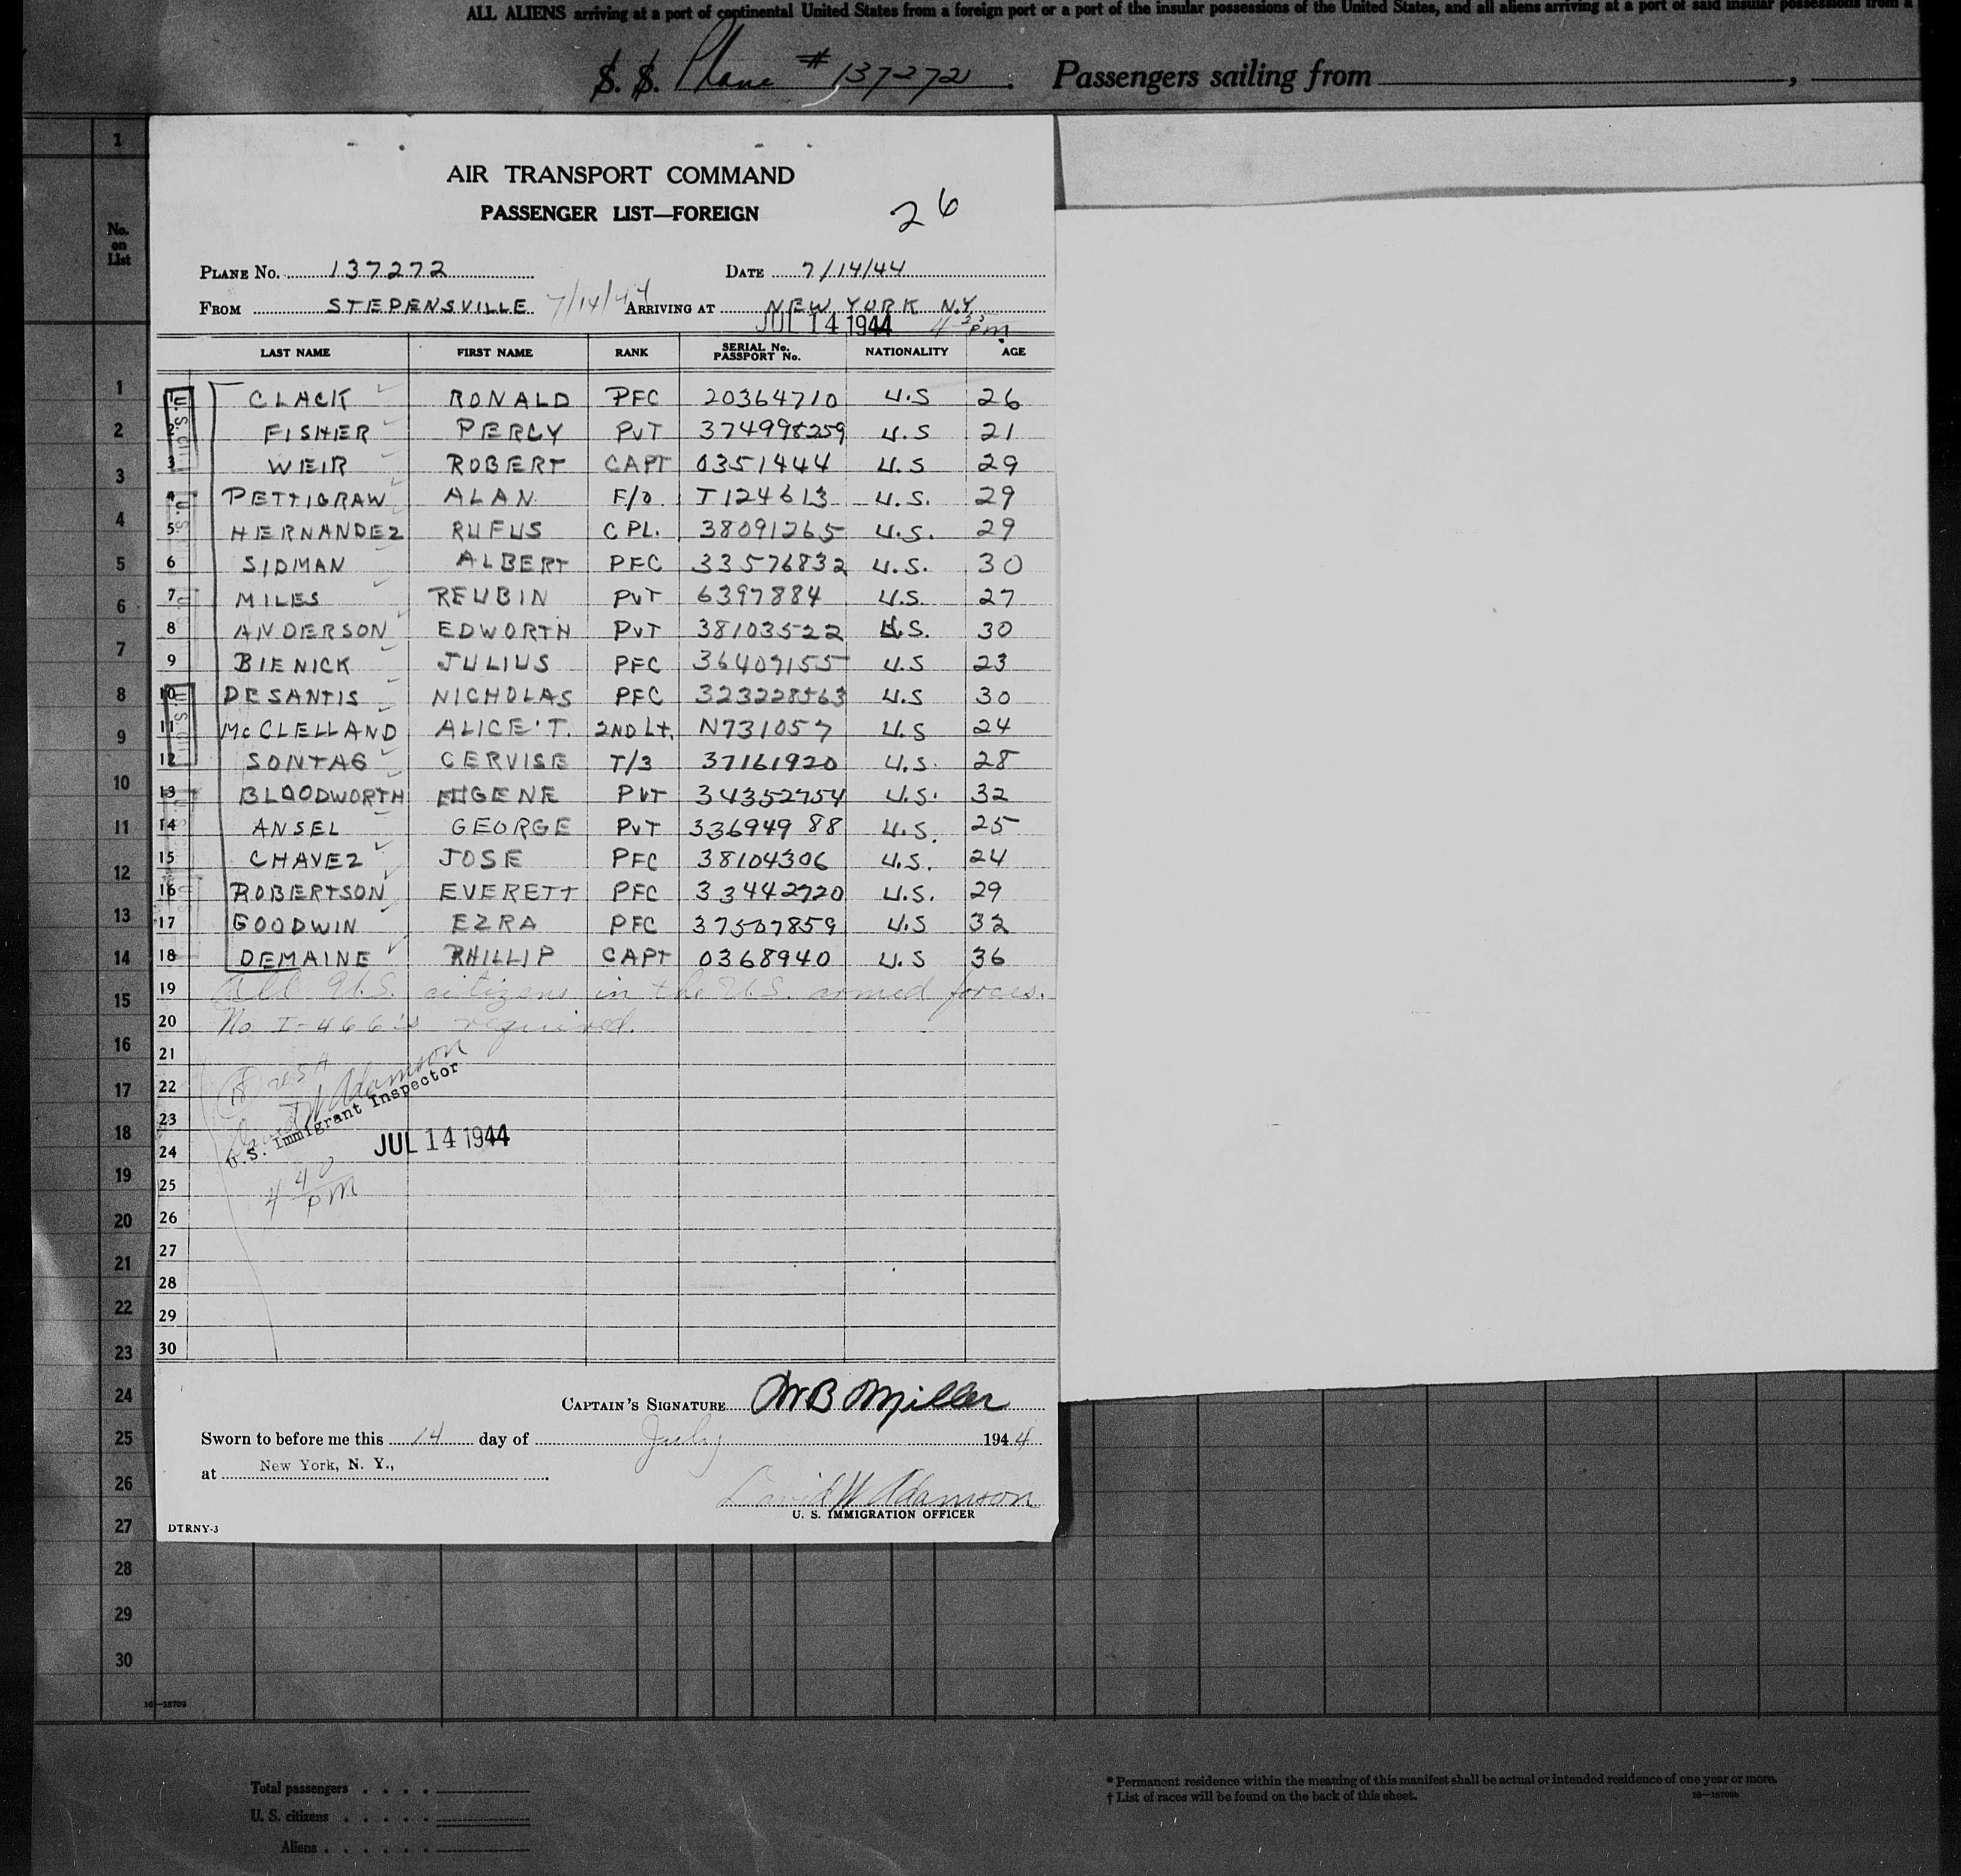 ALL ALIENS arriving at a port of continental United States from a foreign port or a port of the insular possessions of the United States, and all aliens arriving at a port of said insular possessions from a
S. S. Plane # 137272. Passengers sailing from
No. on List
AIR TRANSPORT COMMAND
PASSENGER LIST—FOREIGN
26
PLANE No. 137272 DATE 7/14/44
FROM STEPENSVILLE 7/14/44 ARRIVING AT NEW YORK N.Y.
JUL 14 1944 pm
LAST NAME FIRST NAME RANK SERIAL No. PASSPORT No. NATIONALITY AGE
1 CLACK RONALD PFC 20364710 U.S 26
2 FISHER PERCY PVT 374998259 U.S 21
3 WEIR ROBERT CAPT 0351444 U.S 29
4 PETTIGRAW ALAN F/O T124613 U.S. 29
5 HERNANDEZ RUFUS CPL. 38091265 U.S. 29
6 SIDMAN ALBERT PFC 33576832 U.S. 30
7 MILES REUBIN PVT 6397884 U.S. 27
8 ANDERSON EDWORTH PVT 38103522 U.S. 30
9 BIENICK JULIUS PFC 36407155 U.S 23
10 DESANTIS NICHOLAS PFC 323228563 U.S 30
11 McCLELLAND ALICE T. 2ND Lt. N731057 U.S 24
12 SONTAG CERVISE T/3 37161920 U.S. 28
13 BLOODWORTH EUGENE PVT 34352754 U.S. 32
14 ANSEL GEORGE PVT 33694988 U.S. 25
15 CHAVEZ JOSE PFC 38104306 U.S. 24
16 ROBERTSON EVERETT PFC 33442720 U.S. 29
17 GOODWIN EZRA PFC 37507859 U.S 32
18 DEMAINE PHILLIP CAPT 0368940 U.S 36
19 All U.S. citizens in the U.S. armed forces.
20 No I-466's required.
21
22 (18) USA
23 David W Adamson
U.S. Immigrant Inspector
24 JUL 14 1944
25 4 40 pm
26
27
28
29
30
CAPTAIN'S SIGNATURE WB Miller
Sworn to before me this 14 day of July 1944
at New York, N. Y.,
David W Adamson
U. S. IMMIGRATION OFFICER
DTRNY-3
1
1
2
3
4
5
6
7
8
9
10
11
12
13
14
15
16
17
18
19
20
21
22
23
24
25
26
27
28
29
30
16—18709
Total passengers
U. S. citizens
Aliens
* Permanent residence within the meaning of this manifest shall be actual or intended residence of one year or more.
† List of races will be found on the back of this sheet.